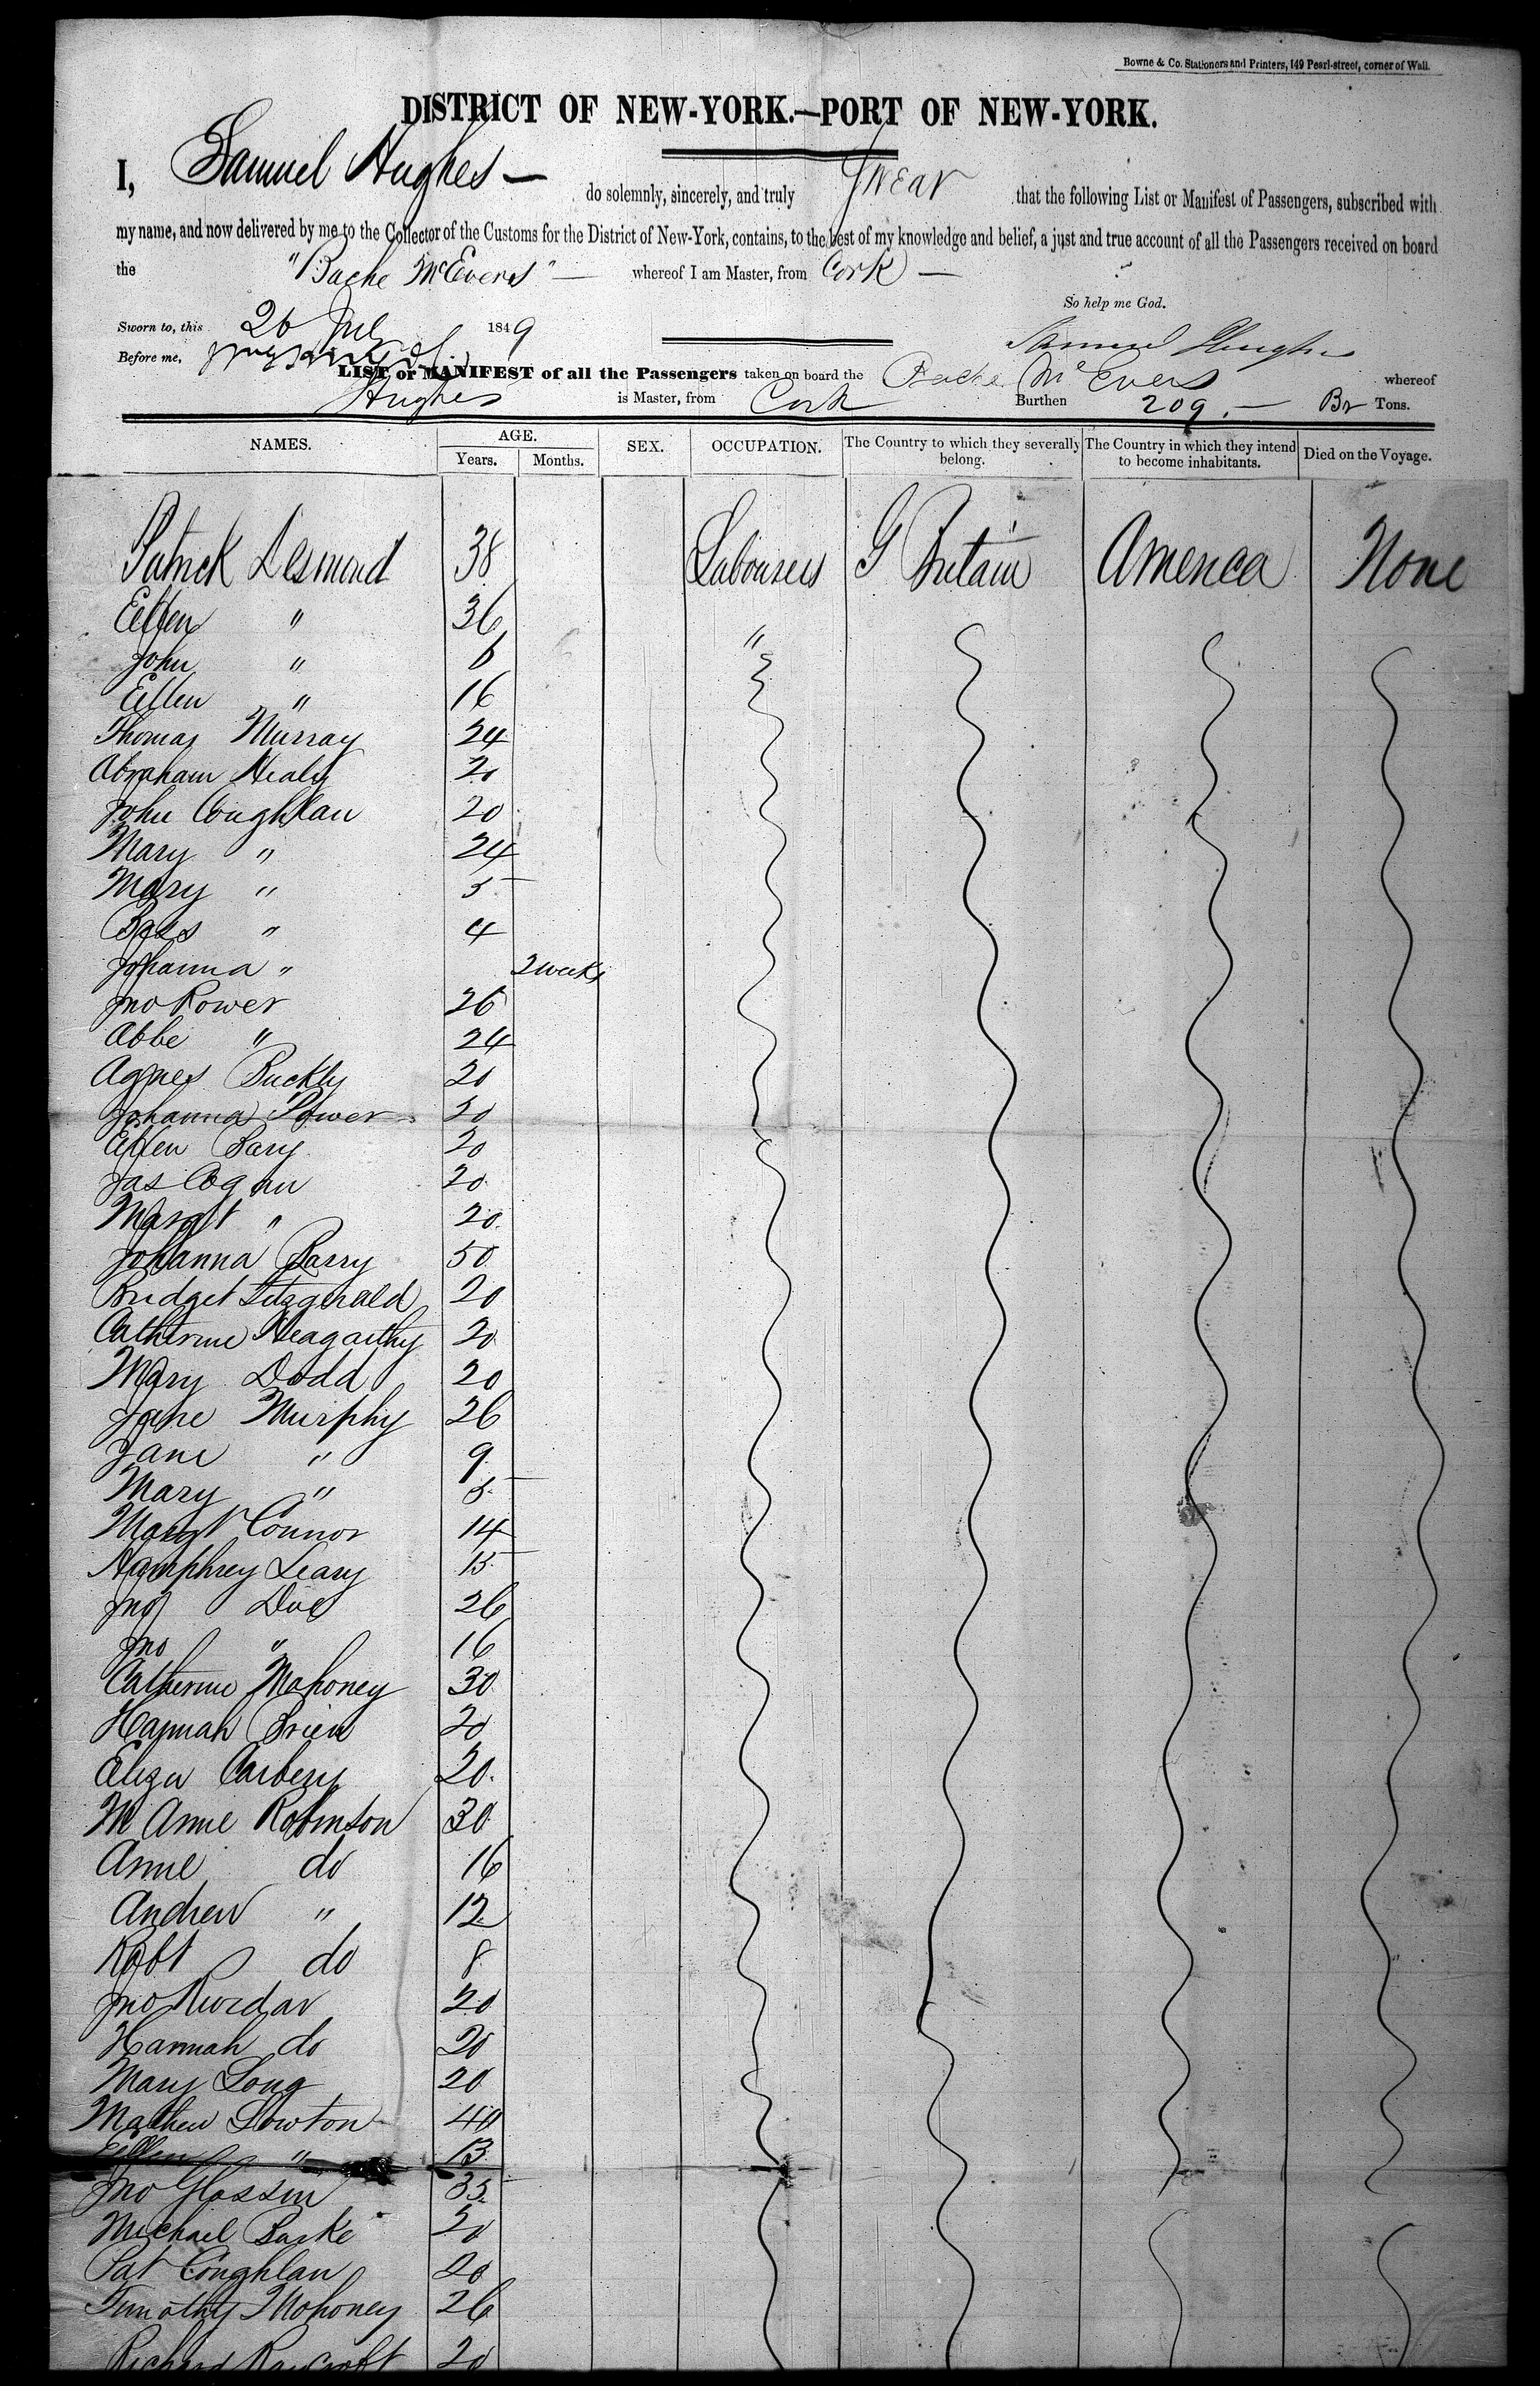 Bowne & Co. Stationers and Printers, 149 Pearl-street, corner of Wall.
DISTRICT OF NEW-YORK.—PORT OF NEW-YORK.
I, Samuel Hughes — do solemnly, sincerely, and truly swear that the following List or Manifest of Passengers, subscribed with
my name, and now delivered by me to the Collector of the Customs for the District of New-York, contains, to the best of my knowledge and belief, a just and true account of all the Passengers received on board
the "Bache McEvers" — whereof I am Master, from Cork —
So help me God.
Sworn to, this 26 Jul 1849
Samuel Hughes
Before me,
LIST or MANIFEST of all the Passengers taken on board the Bache McEvers whereof
Hughes is Master, from Cork Burthen 209. — Br Tons.
NAMES. AGE. Years. Months. SEX. OCCUPATION. The Country to which they severally belong. The Country in which they intend to become inhabitants. Died on the Voyage.
Patrick Desmond 38 Labourers G Britain America None
Ellen " 36 "
John " 6
Ellen " 16
Thomas Murray 24
Abraham Healy 20
John Coughlan 20
Mary " 24
Mary " 5
Bess " 4
Johanna " 2 weeks
Jno Power 26
Abbe " 24
Agnes Buckly 20
Johanna Power 20
Ellen Bary 20
Jas 20
Margt " 20
Johanna Barry 50
Bridget Fitzgerald 20
Catherine Heagarthy 20
Mary Dodd 20
Jane Murphy 26
Jane " 9
Mary " 5
Margt Connor 14
Humphrey Leary 15
Jno 26
Jno " 16
Catherine Mahoney 30
Hannah Brien 20
Eliza Carbery 20
M Anne Robinson 30
Anne do 16
Andrew " 12
Robt do 8
Jno 20
Hannah do 20
Mary Long 20
Mathew Lowton 40
Ellen " 13
Jno Glassin 35
Michael Burke 20
Pat Coughlan 20
Timothy Mahoney 26
Richard Raycroft 20